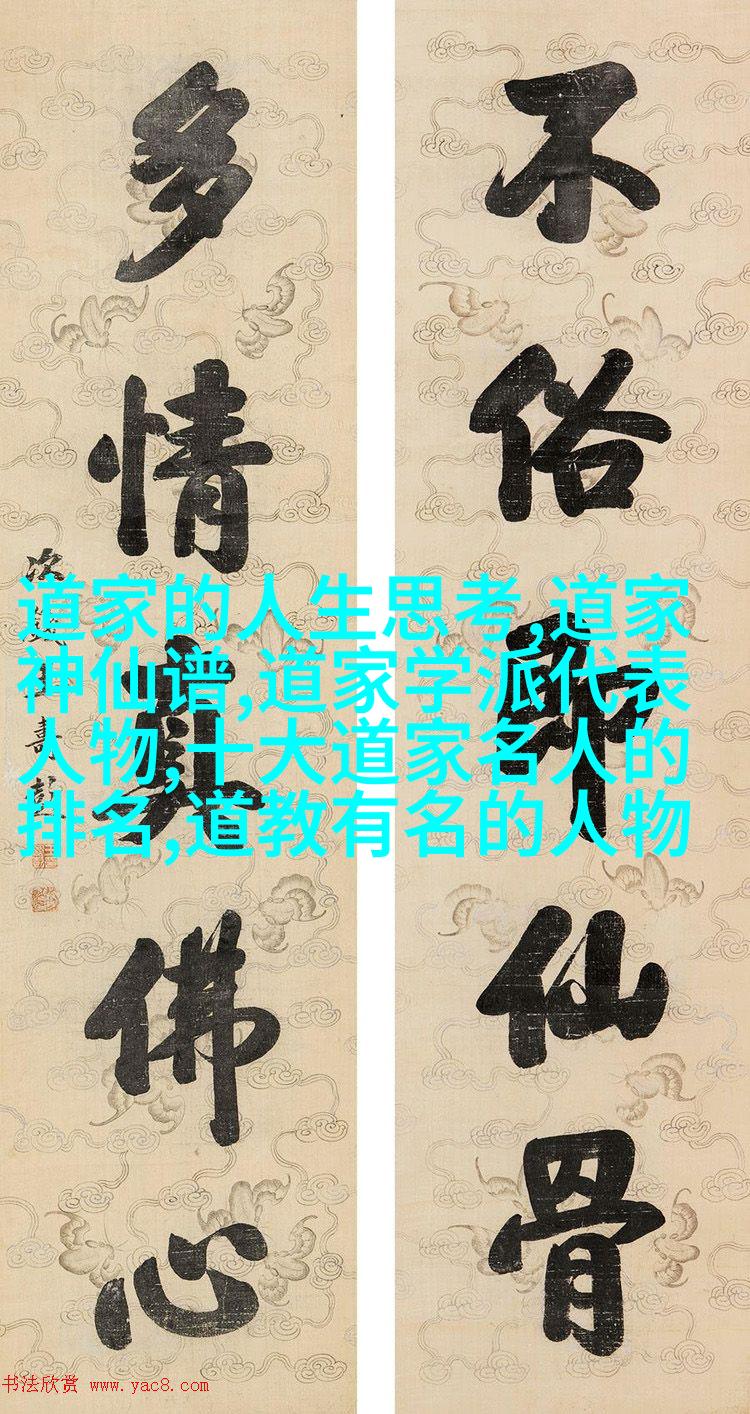 不俗即仙骨
多情真佛心
次
壽彭
道家的人生思考,道家
神仙谱,道家学派代表
人物,十大道家名人的
排名,道教有名的人物
书法欣赏 www.yac8.com